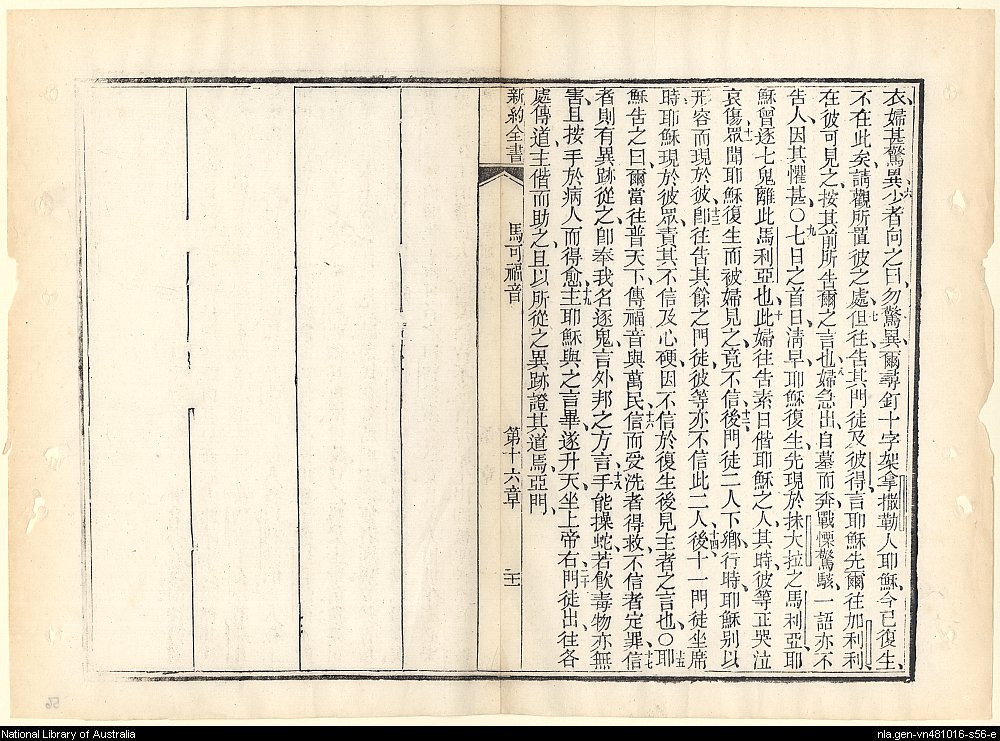 衣、婦甚驚異、六少者向之曰、勿驚異、爾尋釘十字架拿撒勒人耶穌、今已復生、
不在此矣、請觀所置彼之處、七但往告其門徒及彼得言耶穌先爾往加利利、
在彼可見之、按其前所告爾之言也、八婦急出、自墓而奔、戰慄驚駭、一語亦不
告人、因其懼甚○九七日之首日、淸早耶穌復生、先現於抹大拉之馬利亞、耶
穌曾逐七鬼離此馬利亞也、十此婦往告素日偕耶穌之人、其時、彼等正哭泣
哀傷、十一眾聞耶穌復生、而被婦見之、竟不信、十二後門徒二人下鄉、行時、耶穌別以
形容而現於彼、十三卽往告其餘之門徒、彼等亦不信此二人、十四後十一門徒坐席
時、耶穌現於彼眾、責其不信及心硬、因不信於復生後見主者之言也、○十五耶
穌告之曰、爾當往普天下、傳福音與萬民、十六信而受洗者得救、不信者定罪、十七信
者則有異跡從之、卽奉我名逐鬼、言外邦之方言、十八手能操蛇、若飮毒物亦無
害、且按手於病人而得愈、十九主耶穌與之言畢、遂升天、坐上帝右、二十門徒出、往各
處傳道、主偕而助之、且以所從之異跡、證其道焉、亞門、
新約全書 馬可福音 第十六章
National Library of Australia
nla.gen-vn481016-s56-e